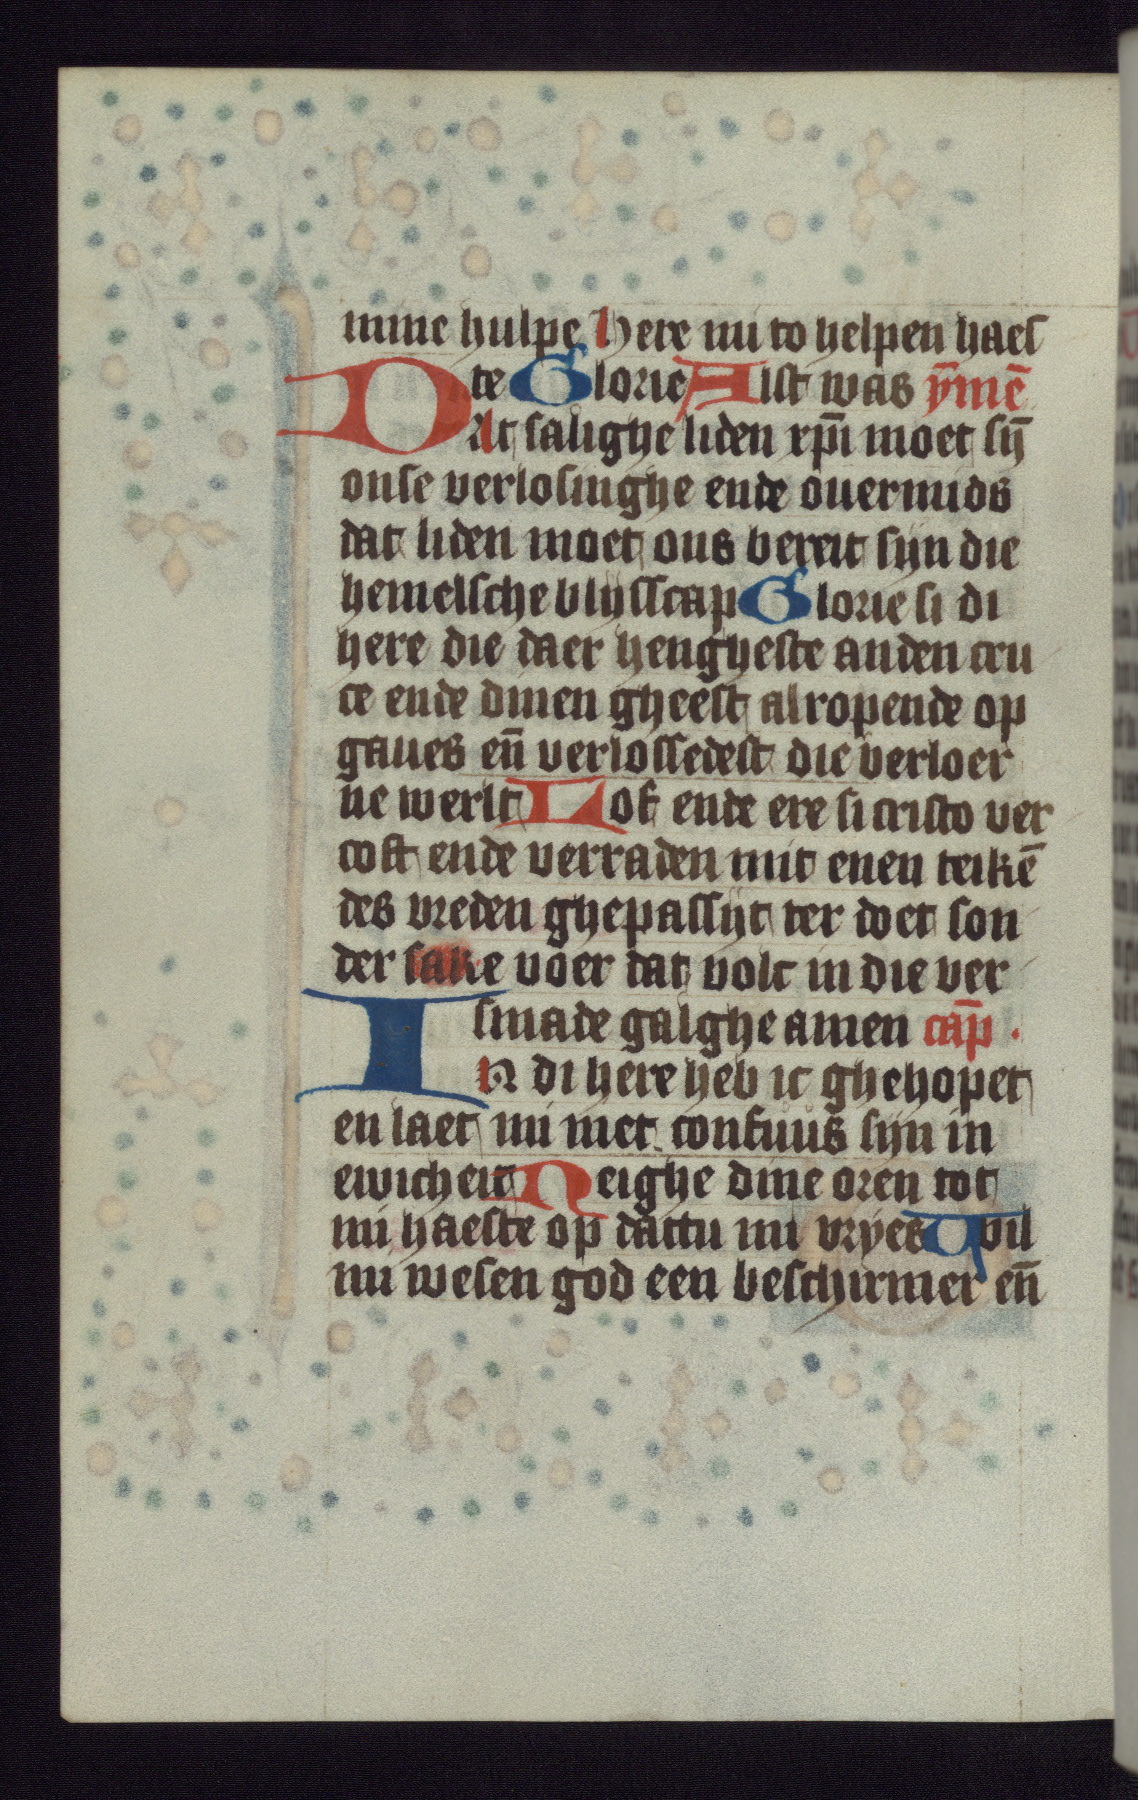 mine hulpe Here mi to helpen haes
te Glorie Alst was ȳmē
Dat salighe liden xp̄i moet sȳ
onse verlosinghe ende ouermids
dat liden moet ons bereit sijn die
hemelsche blijsscap Glorie si di
here die daer hengheste anden cru
ce ende dinen gheest al ropende op
gaues eñ verlossedest die verloer
ne werlt Lof ende ere si cristo ver
coft ende verraden mit enen teikē
des vreden ghepassijt ter doet son
der sake voer dat volc in die ver
smade galghe amen cap̄ .
In di here heb ic ghehopet
en laet mi niet confuus sijn in
ewicheit Neighe dine oren tot
mi haeste op dattu mi vryes Wil
mi wesen god een beschirmer eñ